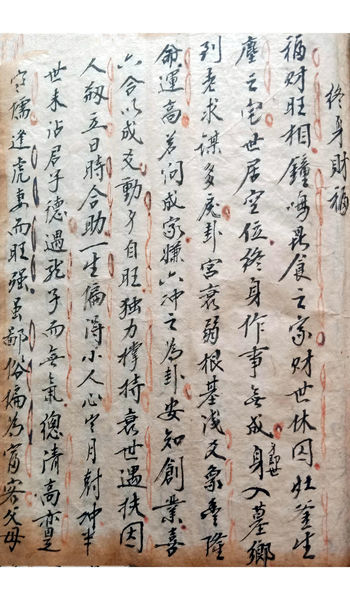 終身財福
福财旺相鐘鳴鼎食之家财世休囚灶釜生
塵之宅世居空位終身作事無成身入墓鄉
到老求謀多戾卦宮衰弱根基浅爻象豐隆
命運高若問成家嫌六冲之為卦安知創業喜
六合以成爻動身自旺独力撑持衰世遇扶因
人刱立日時合助一生偏得小人心岁月尅冲半
世未沾君子德遇龙子而無氣總清高亦是
寒儒逢虎妻而旺强虽鄙俗偏為富客父母